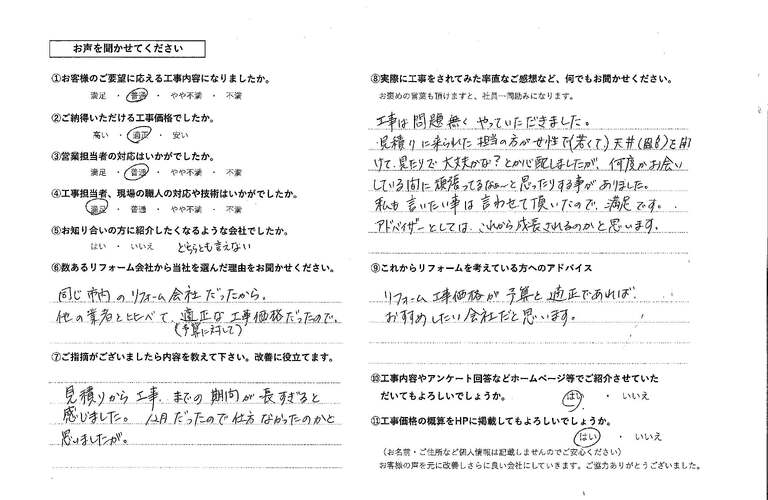 お声を聞かせてください
①お客様のご要望に応える工事内容になりましたか。
満足 ・ 普通 ・ やや不満 ・ 不満
②ご納得いただける工事価格でしたか。
高い ・ 適正 ・ 安い
③営業担当者の対応はいかがでしたか。
満足 ・ 普通 ・ やや不満 ・ 不満
④工事担当者、現場の職人の対応や技術はいかがでしたか。
満足 ・ 普通 ・ やや不満 ・ 不満
⑤お知り合いの方に紹介したくなるような会社でしたか。
はい ・ いいえ どちらとも言えない
⑥数あるリフォーム会社から当社を選んだ理由をお聞かせください。
同じ市内のリフォーム会社だったから。
他の業者と比べて、適正な工事価格だったので。
(予算に対して)
⑦ご指摘がございましたら内容を教えて下さい。改善に役立てます。
見積りから工事、までの期間が長すぎると
感じました。12月だったので仕方なかったのかと
思いましたが。
⑧実際に工事をされてみた率直なご感想など、何でもお聞かせください。
お褒めの言葉も頂けますと、社員一同励みになります。
工事は問題無くやっていただきました。
見積りに来られた担当の方が女性で(若くて)天井(風呂)を開
けて見たりで大丈夫かな?とか心配しましたが、何度かお会い
している間に頑張ってるなぁーと思ったりする事がありました。
私も言いたい事は言わせて頂いたので、満足です。
アドバイザーとしては、これから成長されるのかと思います。
⑨これからリフォームを考えている方へのアドバイス
リフォーム工事価格が予算と適正であれば、
おすすめしたい会社だと思います。
⑩工事内容やアンケート回答などホームページ等でご紹介させていた
だいてもよろしいでしょうか。 はい ・ いいえ
⑪工事価格の概算をHPに掲載してもよろしいでしょうか。
はい ・ いいえ
(お名前・ご住所など個人情報は記載しませんのでご安心ください)
お客様の声を元に改善しさらに良い会社にしていきます。ご協力ありがとうございました。